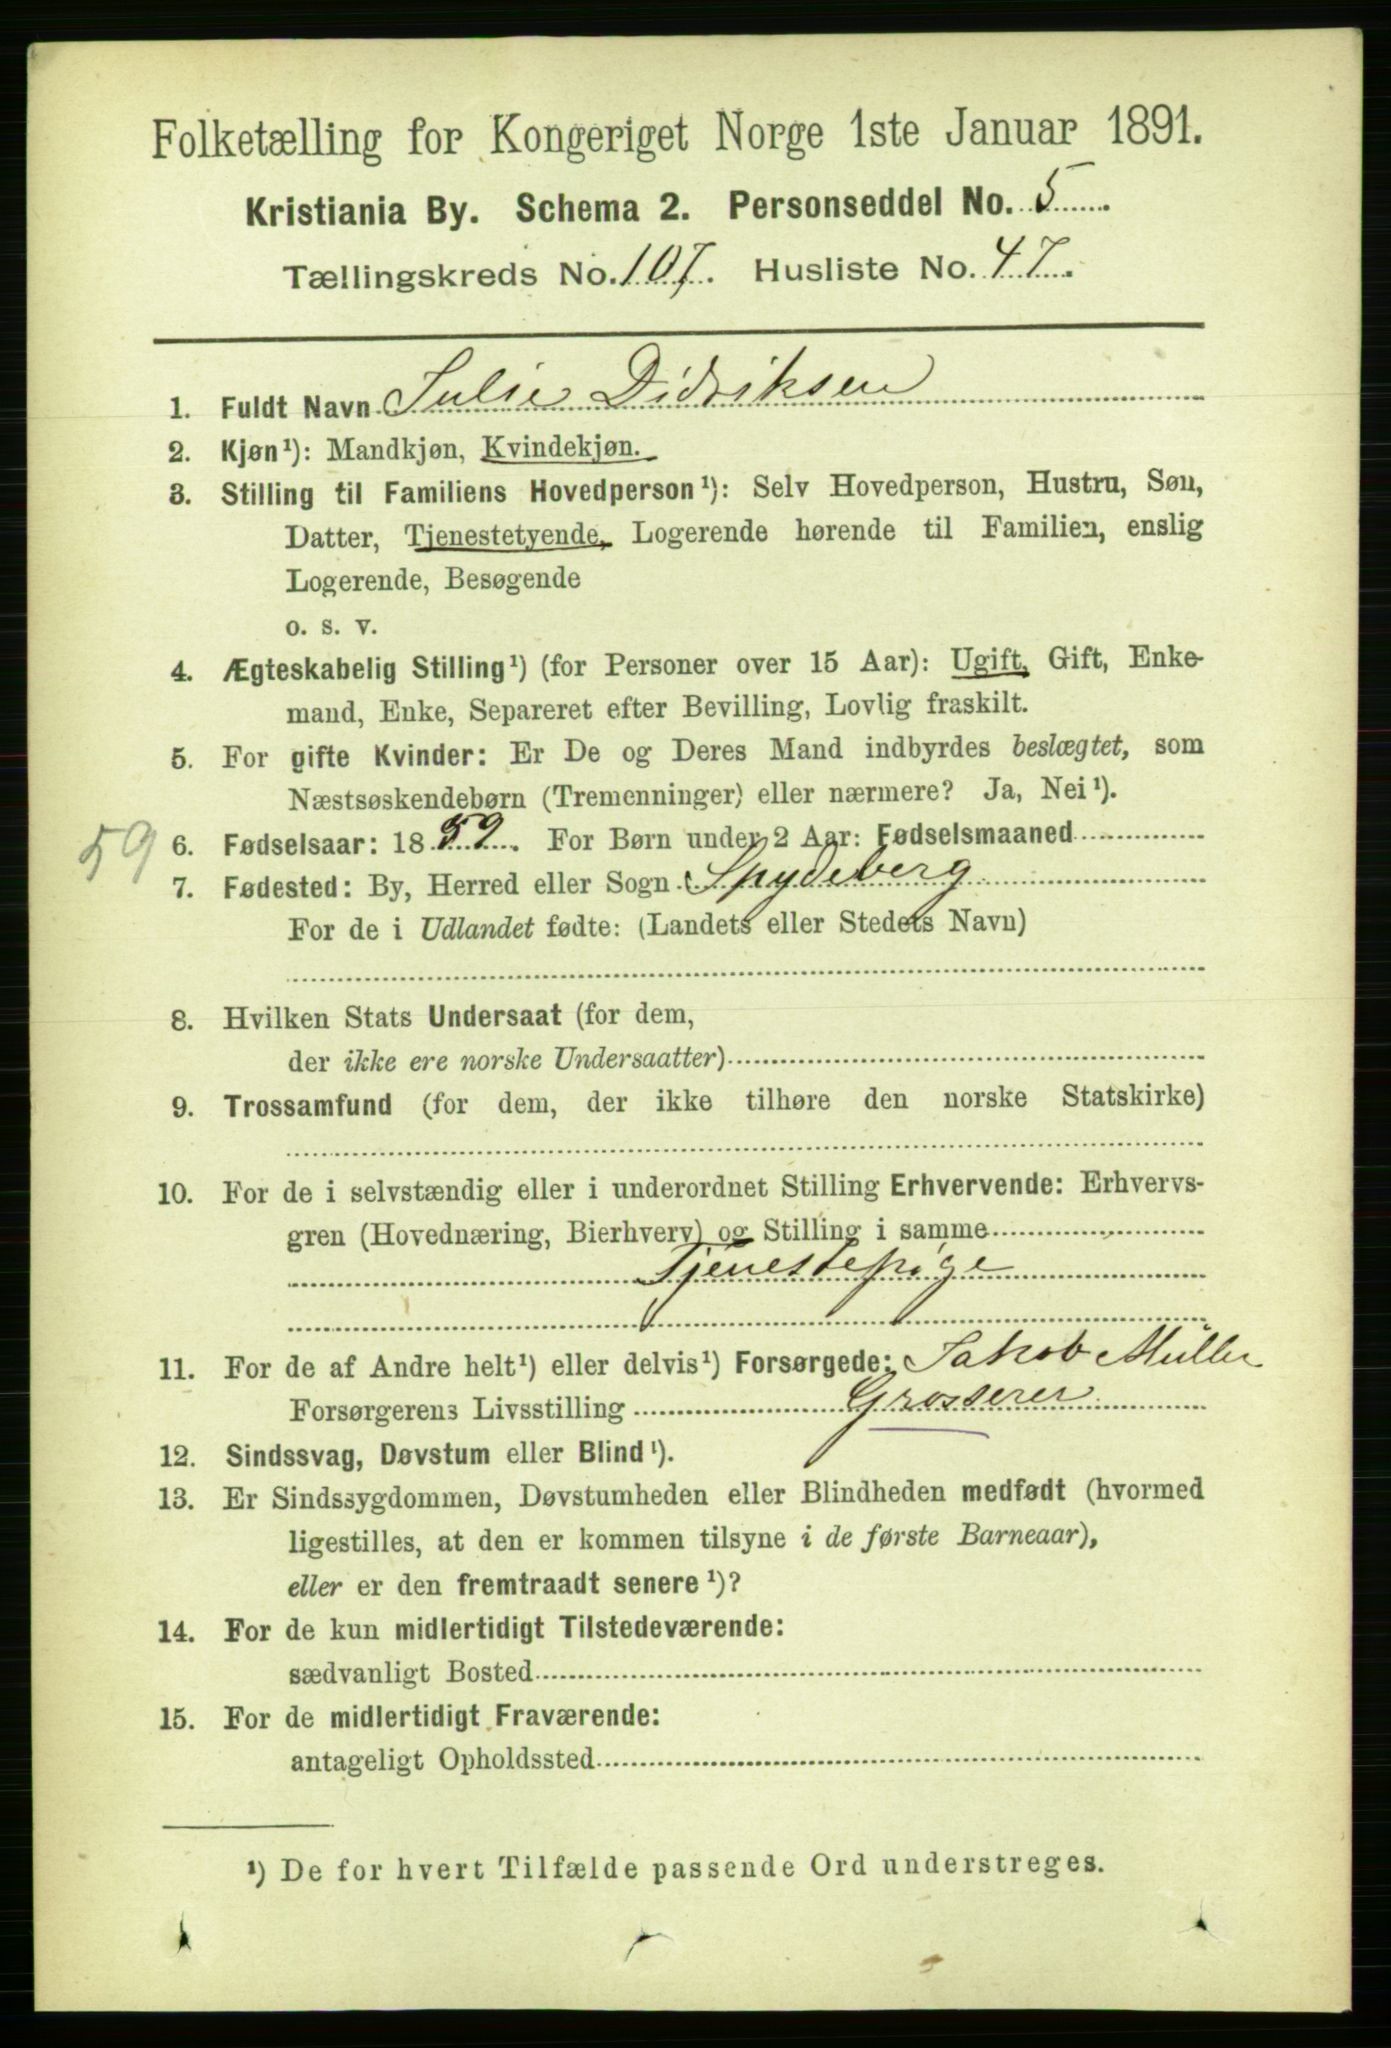 Folketælling for Kongeriget Norge 1ste Januar 1891.
Kristiania By. Schema 2. Personseddel No. 5
Tællingskreds No. 107. Husliste No. 47.
1. Fuldt Navn Julie Didriksen
2. Kjøn¹): Mandkjøn, Kvindekjøn.
3. Stilling til Familiens Hovedperson¹): Selv Hovedperson, Hustru, Søn,
Datter, Tjenestetyende, Logerende hørende til Familien, enslig
Logerende, Besøgende
o. s. v.
4. Ægteskabelig Stilling¹) (for Personer over 15 Aar): Ugift, Gift, Enke-
mand, Enke, Separeret efter Bevilling, Lovlig fraskilt.
5. For gifte Kvinder: Er De og Deres Mand indbyrdes beslægtet, som
Næstsøskendebørn (Tremenninger) eller nærmere? Ja, Nei¹).
59 6. Fødselsaar: 1859. For Børn under 2 Aar: Fødselsmaaned
7. Fødested: By, Herred eller Sogn Spydeberg
For de i Udlandet fødte: (Landets eller Stedets Navn)
8. Hvilken Stats Undersaat (for dem,
der ikke ere norske Undersaatter)
9. Trossamfund (for dem, der ikke tilhøre den norske Statskirke)
10. For de i selvstændig eller i underordnet Stilling Erhvervende: Erhvervs-
gren (Hovednæring, Bierhverv) og Stilling i samme
Tjenestepige
11. For de af Andre helt¹) eller delvis¹) Forsørgede: Jakob Müller
Forsørgerens Livsstilling Grosserer
12. Sindssvag, Døvstum eller Blind¹).
13. Er Sindssygdommen, Døvstumheden eller Blindheden medfødt (hvormed
ligestilles, at den er kommen tilsyne i de første Barneaar),
eller er den fremtraadt senere¹)?
14. For de kun midlertidigt Tilstedeværende:
sædvanligt Bosted
15. For de midlertidigt Fraværende:
antageligt Opholdssted
¹) De for hvert Tilfælde passende Ord understreges.